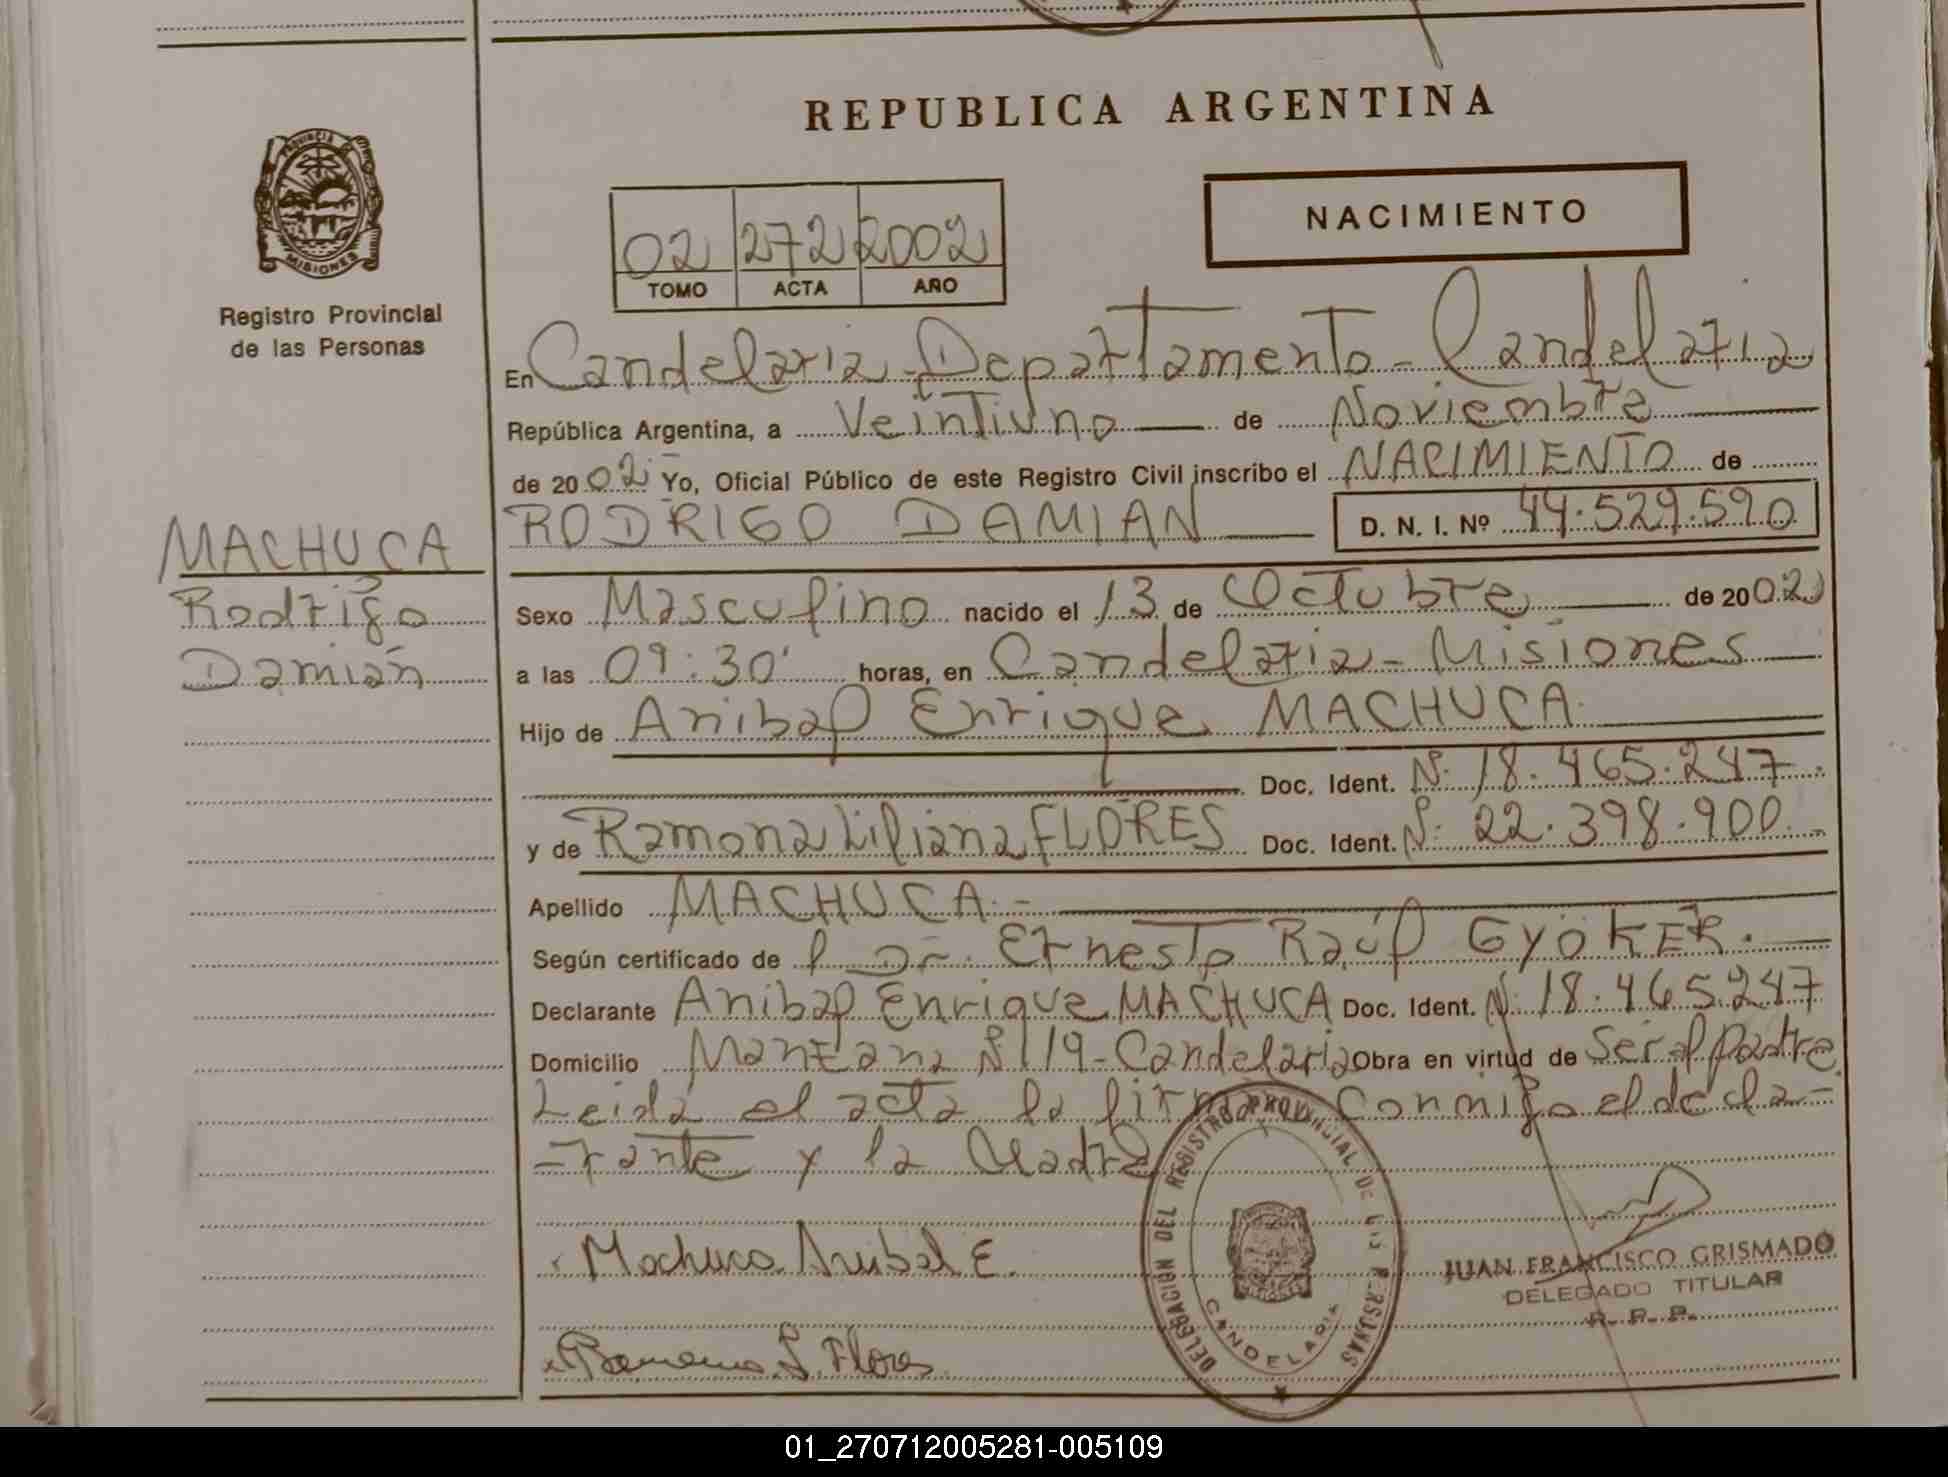 REPUBLICA ARGENTINA
PROVINCIA DE
MISIONES
Registro Provincial
de las Personas
02 272 2002
TOMO ACTA AÑO
NACIMIENTO
En Candelaria - Departamento - Candelaria
República Argentina, a Veintiuno de Noviembre
de 2002 Yo, Oficial Público de este Registro Civil inscribo el NACIMIENTO de
RODRIGO DAMIAN D. N. I. Nº 44.529.590
MACHUCA
Rodrigo
Damián
Sexo Masculino nacido el 13 de Octubre de 2002
a las 09:30' horas, en Candelaria - Misiones
Hijo de Anibal Enrique MACHUCA.
Doc. Ident. Nº 18.465.247
y de Ramona Liliana FLORES Doc. Ident. Nº 22.398.900
Apellido MACHUCA.-
Según certificado de l Dr. Ernesto Raúl GYÖKER.
Declarante Anibal Enrique MACHUCA Doc. Ident. Nº 18.465.247
Domicilio Manzana Nº 119 - Candelaria Obra en virtud de Ser el padre
Leida el acta la firma conmigo el decla-
-rante y la Madre
Machuca Anibal E.
Ramona L. Flores
DELEGACIÓN DEL REGISTRO PROVINCIAL DE LAS PERSONAS
CANDELARIA
JUAN FRANCISCO GRISMADO
DELEGADO TITULAR
R. P. P.
01_270712005281-005109